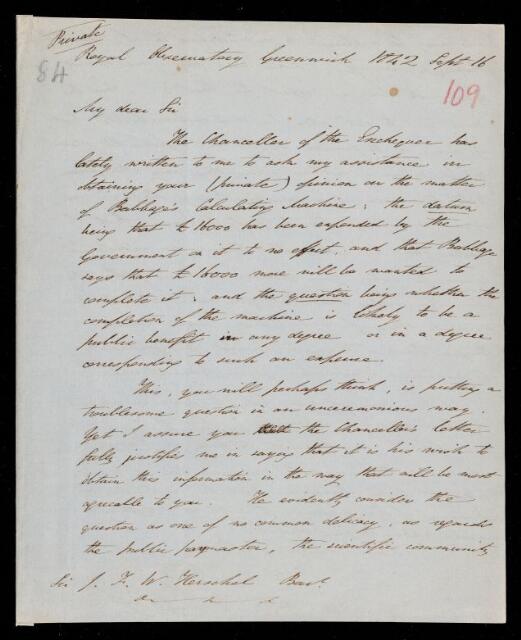 Private
Royal Observatory Greenwich 1842 Sept 16
84
109
My dear Sir
The Chancellor of the Exchequer has
lately written to me to ask my assistance in
obtaining your (private) opinion on the matter
of Babbage's Calculating Machine; the datum
being that £16000 has been expended by the
Government on it to no effect, and that Babbage
says that £16000 more will be wanted to
complete it; and the question being whether the
completion of the machine is likely to be a
public benefit in any degree or in a degree
corresponding to such an expense.
This, you will perhaps think, is putting a
troublesome question in an unceremonious way.
Yet I assure you the Chancellor's letter
fully justifies me in saying that it is his wish to
obtain this information in the way that will be most
agreeable to you. He evidently considers the
question as one of no common delicacy, as regards
the public paymaster, the scientific community
Sir J. F. W. Herschel Bart.